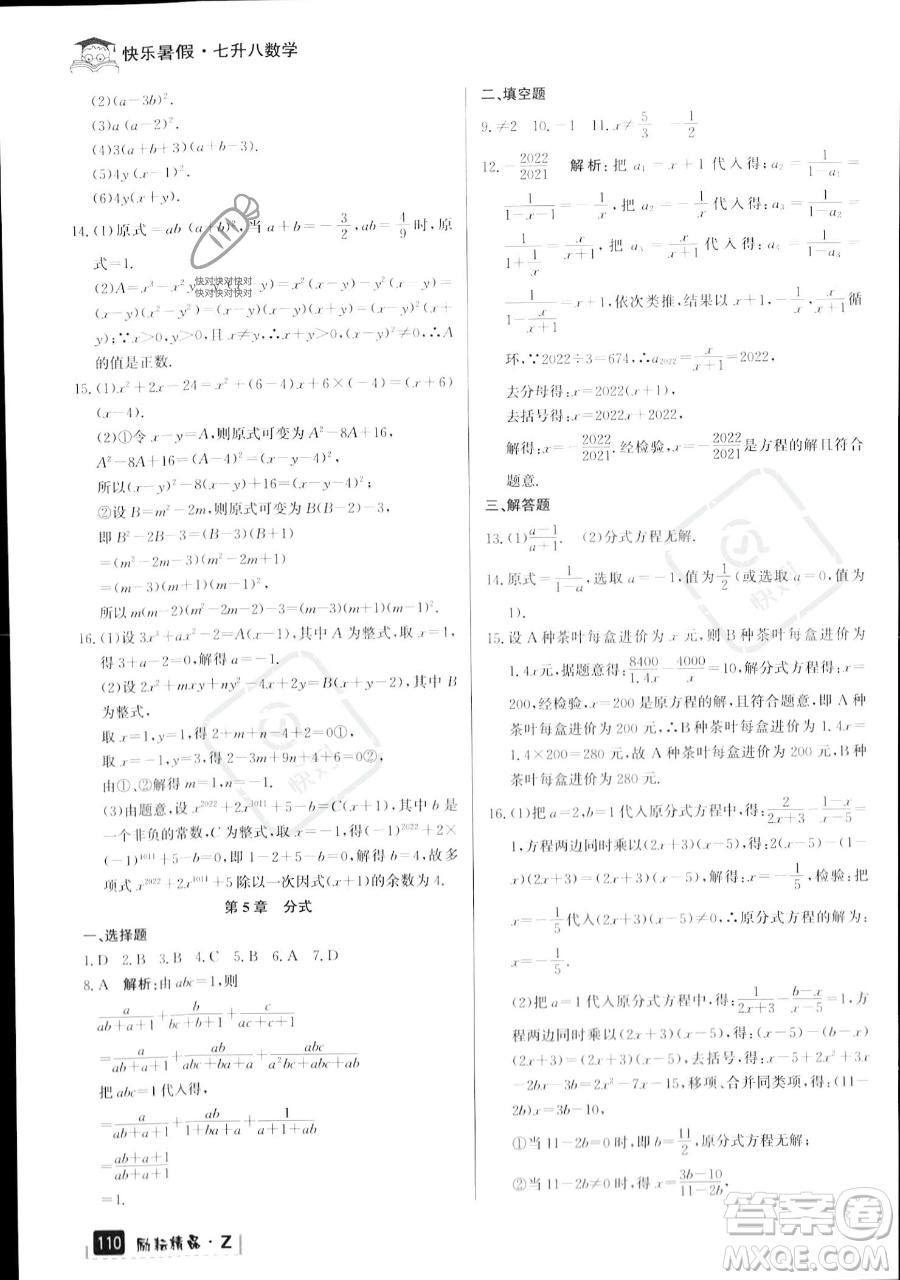 快乐暑假·七升八数学
(2)(a-3b)².
(3)a(a-2)².
(4)3(a+b+3)(a-b).
(5)4y(x-1)².
(6)4y(x+y).
14.(1)原式=ab(a+b)²,当a+b=-3/2,ab=4/9时,原
式=1.
(x-y)(x-y)(x+y)=(x-y)²(x+
y);∵x>0,y>0,且x≠y,∴x+y>0,(x-y)²≠0,∴A
的值是正数.
15.(1)x²+2x-24=x²+(6-4)x+6×(-4)=(x+6)
(x-4).
(2)①令x-y=A,则原式可变为A²-8A+16,
A²-8A+16=(A-4)²=(x-y-4)²,
所以(x-y)²-8(x-y)+16=(x-y-4)²;
②设B=m²-2m,则原式可变为B(B-2)-3,
即B²-2B-3=(B-3)(B+1)
=(m²-2m-3)(m²-2m+1)
=(m-3)(m+1)(m-1)²,
所以m(m-2)(m²-2m-2)-3=(m-3)(m+1)(m-1)².
16.(1)设3x³+ax²-2=(x-1)A,其中A为整式,取x=1
得3+a-2=0,解得a=-1.
(2)设2x²+mxy+ny²-4x+2y=B(x+y),其中B
为整式,
取x=1,y=-1得2-m+n-4-2=0①,
取x=-1,y=1得2-m+n+4+2=0②,
由①、②解得m=
(3)由题意,设x²⁰²²+2x¹⁰¹¹+5-b=(x+1)C,b是
一个非负的常数,C为整式,取x=-1得:(-1)²⁰²²+2×
(-1)¹⁰¹¹+5-b=0,即1-2+5-b=0,解得b=4,故多
项式x²⁰²²+2x¹⁰¹¹+5除以一次因式(x+1)的余数为4.
第5章 分式
一、选择题
1.D 2.B 3.B 4.C 5.B 6.A 7.D
8.A 解析:由abc=1,则
a/(ab+a+1)+b/(bc+b+1)+c/(ac+c+1)
=a/(ab+a+1)+ab/(abc+ab+a)+
把abc=1代入得:
=a/(ab+a+1)+ab/(1+ba+a)+1/(a+1+ab)
=(ab+a+1)/(ab+a+1)
=1.
110 励耘精品·Z
二、填空题
9.≠2 10.-1 11.x≠5/3 -1/2
12.-2022/2021 解析:把a₁=x+1代入得:a₂=1/(1-a₁)=
1/(1-x-1)=-1/x,把a₂=-1/x代入得:a₃=1/(1-a₂)=
1/(1+1/x)=x/(x+1),把a₃=x/(x+1)代入得:a₄=1/(1-a₃)=
1/(1-x/(x+1))=x+1,依次类推,结果以x+1,-1/x,x/(x+1)循
环,∵2022÷3=674,∴a₂₀₂₂=x/(x+1)=2022,
去分母得:x=2022(x+1),
去括号得:x=2022x+2022,
解得:x=-2022/2021.经检验,x=-2022/2021是方程的解且符合
题意.
三、解答题
13.(1)(a-1)/(a+1). (2)分式方程无解.
14.原式=1/(1-a),选取a=-1,值为1/2(或选取a=0,值为
1).
15.设A种茶叶每盒进价为x元,则B种茶叶每盒进价为
1.4x元,据题意得:8400/1.4x-4000/x=10,解分式方程得:x=
200,经检验,x=200是原方程的解,且符合题意,即A种
茶叶每盒进价为200元,∴B种茶叶每盒进价为1.4x=
1.4×200=280元,故A种茶叶每盒进价为200元,B种
茶叶每盒进价为280元.
16.(1)把a=2,b=1代入原分式方程中,得:2/(2x+3)-(1-x)/(x-5)=
1,方程两边同时乘以(2x+3)(x-5),得:2(x-5)-(1-
x)(2x+3)=(2x+3)(x-5),解得:x=-1/5,检验:把x=
-1/5代入(2x+3)(x-5)≠0,∴原分式方程的解为:
x=-1/5.
(2)把a=1代入原分式方程中,得:1/(2x+3)-(b-x)/(x-5)=1,方
程两边同时乘以(2x+3)(x-5),得:(x-5)-(b-x)
(2x+3)=(2x+3)(x-5),去括号,得:x-5+2x²+
3x-2bx-3b=2x²-7x-15,移项、合并同类项,得:(11-
2b)x=3b-10,
①当11-2b=0时,即b=11/2,原分式方程无解;
②当11-2b≠0时,得:x=(3b-10)/(11-2b),
快对快对快对
快对快对快对
答案圈
MXQE.COM